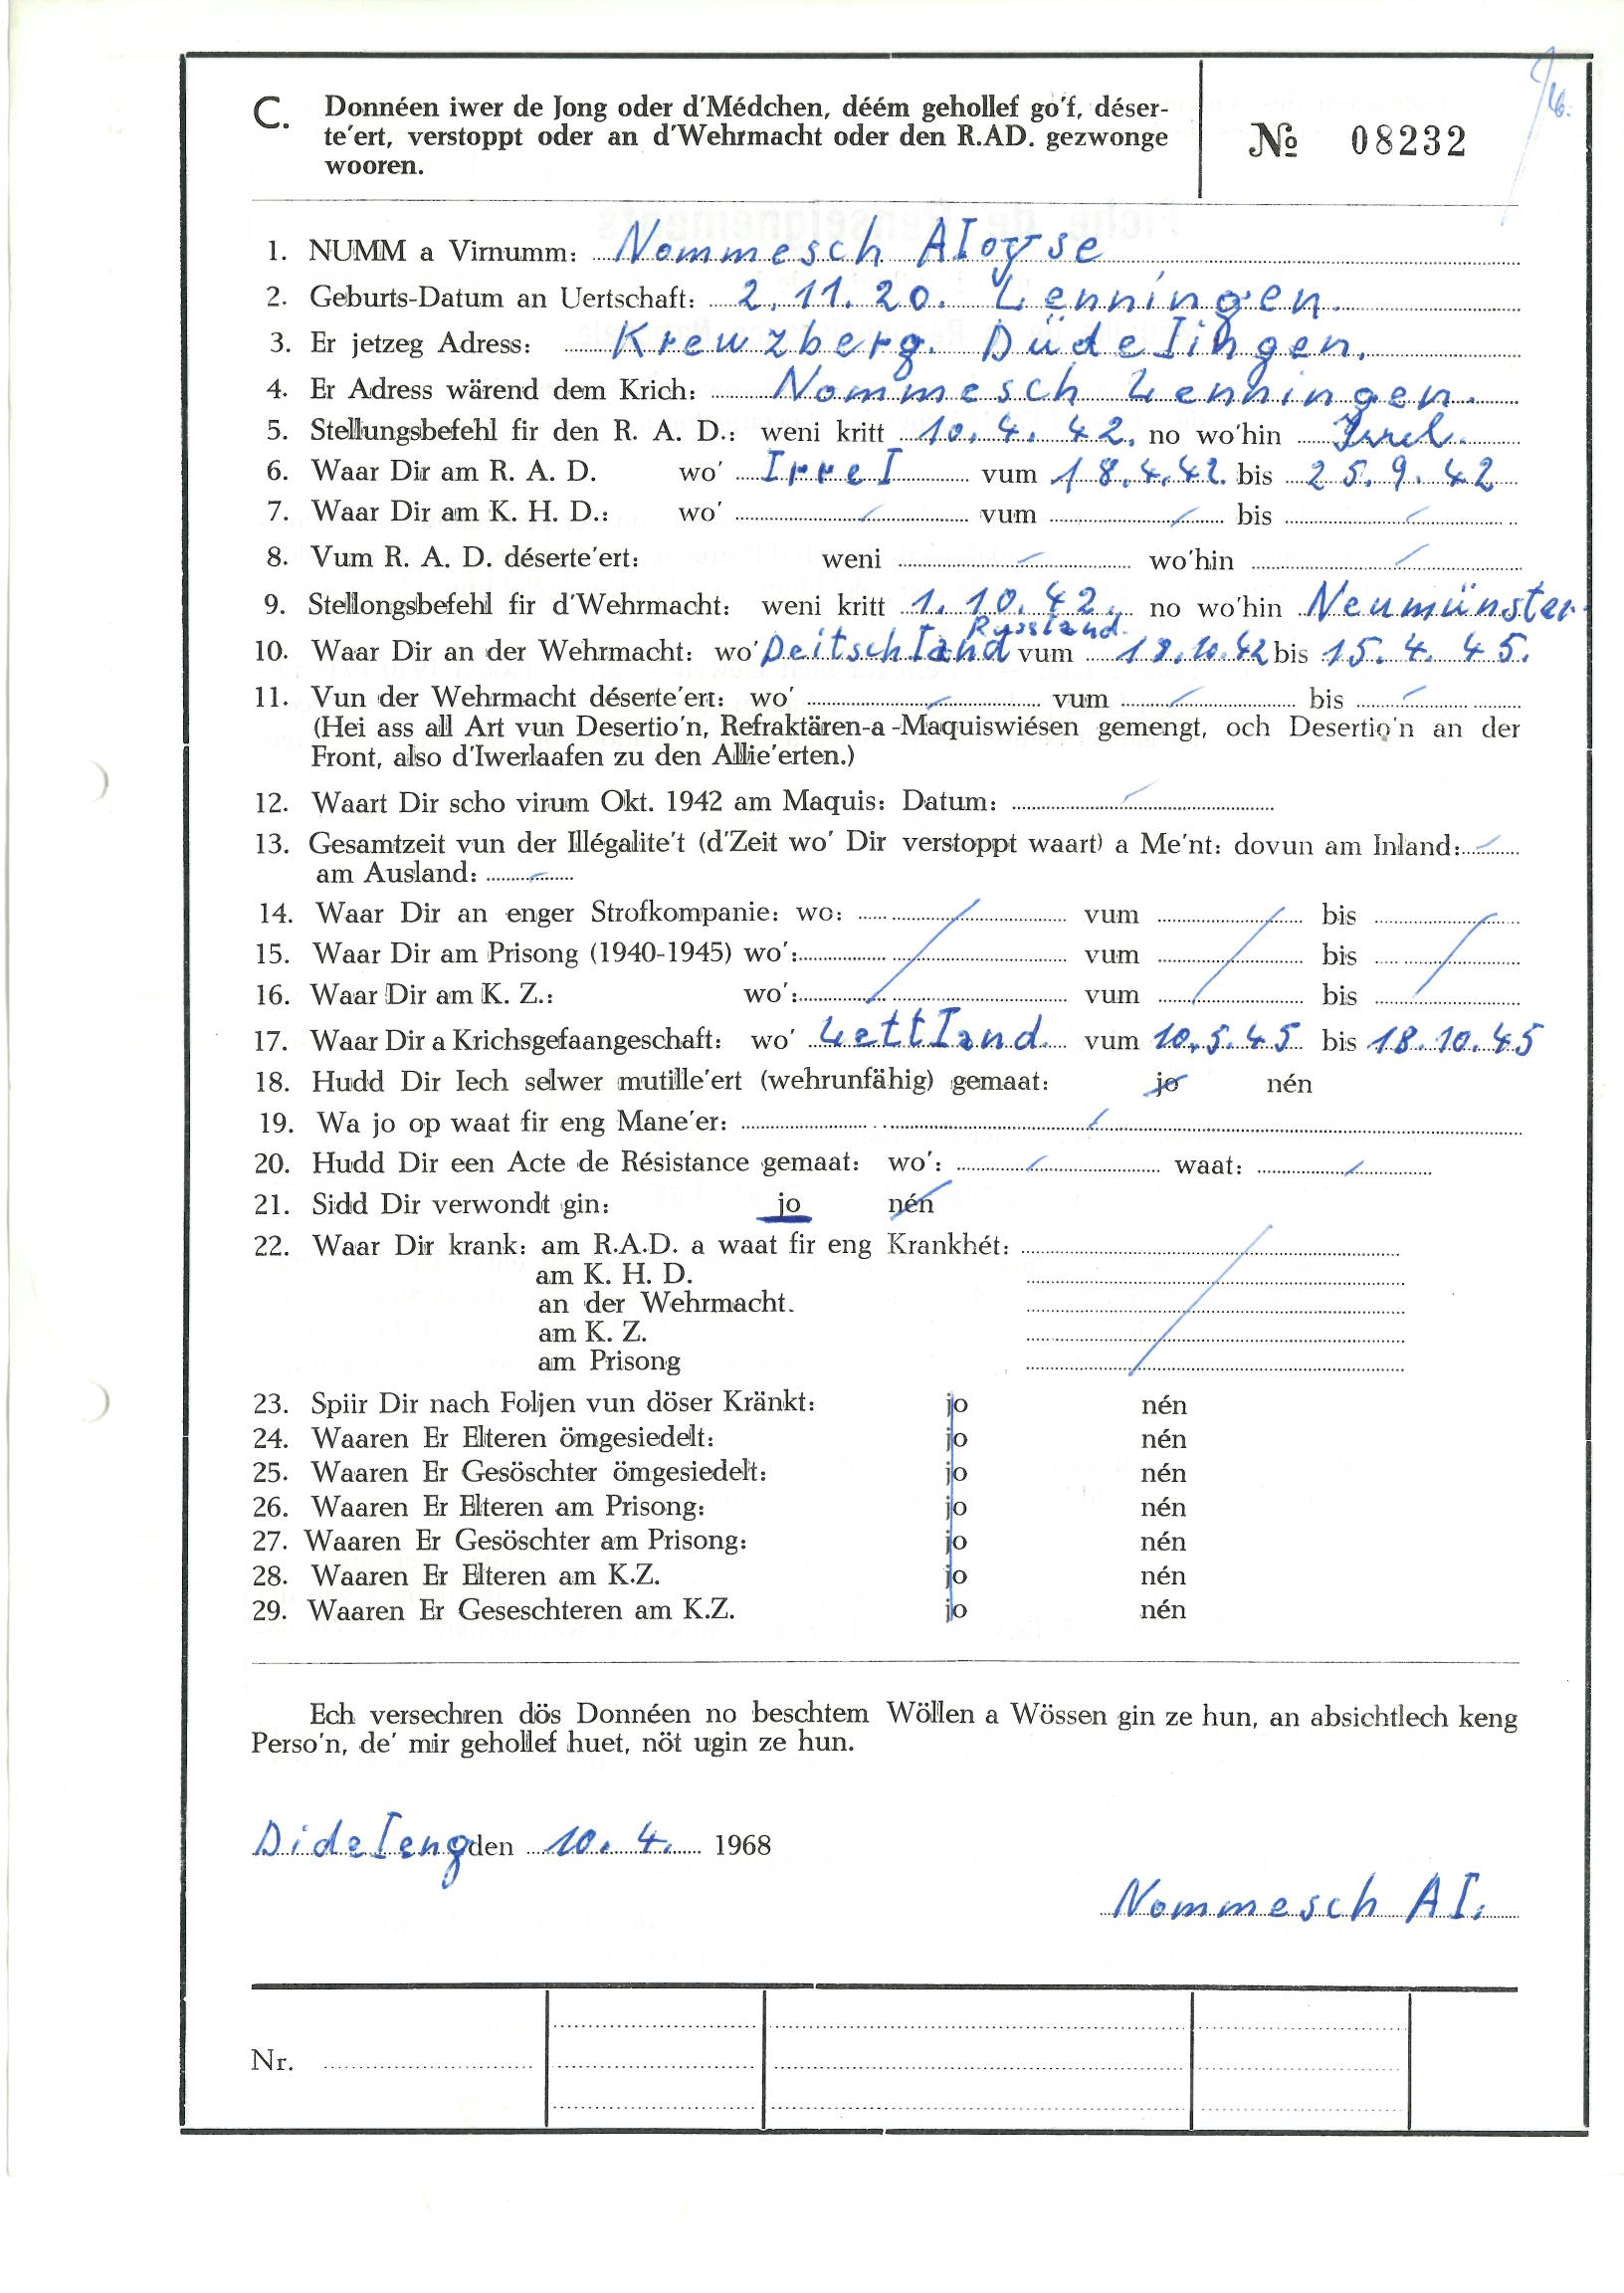 C. Donnéen iwer de Jong oder d'Médchen, déém gehollef go'f, déser-
te'ert, verstoppt oder an d'Wehrmacht oder den R.AD. gezwonge
wooren.
№ 08232
1. NUMM a Virnumm: Nommesch Aloyse
2. Geburts-Datum an Uertschaft: 2.11.20. Lenningen.
3. Er jetzeg Adress: Kreuzberg. Düdelingen.
4. Er Adress wärend dem Krich: Nommesch Lenningen.
5. Stellungsbefehl fir den R. A. D.: weni kritt 10.4.42. no wo'hin Irrel.
6. Waar Dir am R. A. D. wo' Irrel vum 18.4.42. bis 25.9.42
7. Waar Dir am K. H. D.: wo' / vum / bis /
8. Vum R. A. D. déserte'ert: weni / wo'hin /
9. Stellongsbefehl fir d'Wehrmacht: weni kritt 1.10.42. no wo'hin Neumünster.
Russland.
10. Waar Dir an der Wehrmacht: wo' Deitschland vum 18.10.42 bis 15.4.45.
11. Vun der Wehrmacht déserte'ert: wo' / vum / bis /
(Hei ass all Art vun Desertio'n, Refraktären-a -Maquiswiésen gemengt, och Desertio'n an der
Front, also d'Iwerlaafen zu den Allie'erten.)
12. Waart Dir scho virum Okt. 1942 am Maquis: Datum: /
13. Gesamtzeit vun der Illégalite't (d'Zeit wo' Dir verstoppt waart) a Me'nt: dovun am Inland: /
am Ausland: /
14. Waar Dir an enger Strofkompanie: wo: vum bis
15. Waar Dir am Prisong (1940-1945) wo': / vum / bis /
16. Waar Dir am K. Z.: wo': vum bis
17. Waar Dir a Krichsgefaangeschaft: wo' Lettland. vum 10.5.45 bis 18.10.45
18. Hudd Dir Iech selwer mutille'ert (wehrunfähig) gemaat: jo nén
19. Wa jo op waat fir eng Mane'er: /
20. Hudd Dir een Acte de Résistance gemaat: wo': / waat: /
21. Sidd Dir verwondt gin: jo nén
22. Waar Dir krank: am R.A.D. a waat fir eng Krankhét:
am K. H. D.
an der Wehrmacht.
am K. Z.
am Prisong
23. Spiir Dir nach Foljen vun döser Kränkt: jo nén
24. Waaren Er Elteren ömgesiedelt: jo nén
25. Waaren Er Gesöschter ömgesiedelt: jo nén
26. Waaren Er Elteren am Prisong: jo nén
27. Waaren Er Gesöschter am Prisong: jo nén
28. Waaren Er Elteren am K.Z. jo nén
29. Waaren Er Geseschteren am K.Z. jo nén
Ech versechren dös Donnéen no beschtem Wöllen a Wössen gin ze hun, an absichtlech keng
Perso'n, de' mir gehollef huet, nöt ugin ze hun.
Dideleng den 10.4. 1968
Nommesch Al.
Nr.